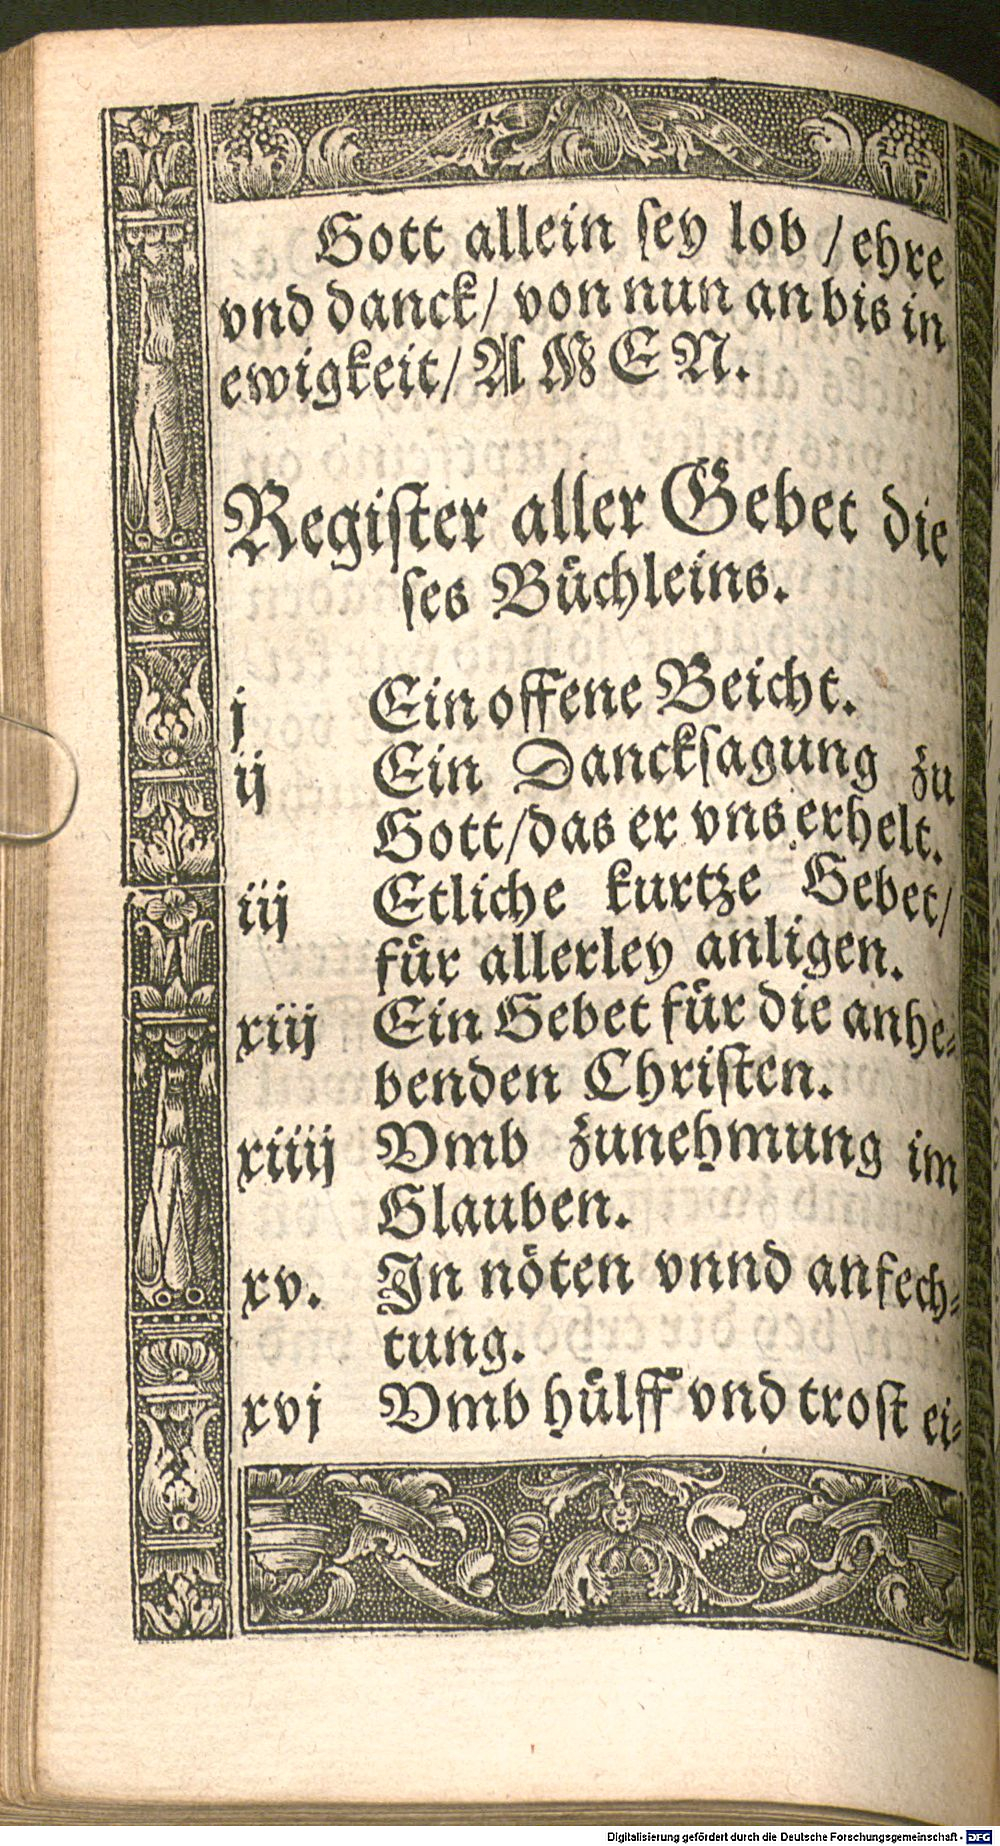 Gott allein sey lob / ehre
vnd danck / von nun an bis in
ewigkeit / A M E N.
Register aller Gebet die
ses Büchleins.
j Ein offene Beicht.
ij Ein Dancksagung zu
Gott / das er vns erhelt.
iij Etliche kurtze Gebet /
für allerley anligen.
xiij Ein Gebet für die anhe-
benden Christen.
xiiij Vmb zunehmung im
Glauben.
xv. In nöten vnnd anfech-
tung.
xvj Vmb hülff vnd trost ei-
Digitalisierung gefördert durch die Deutsche Forschungsgemeinschaft - DFG